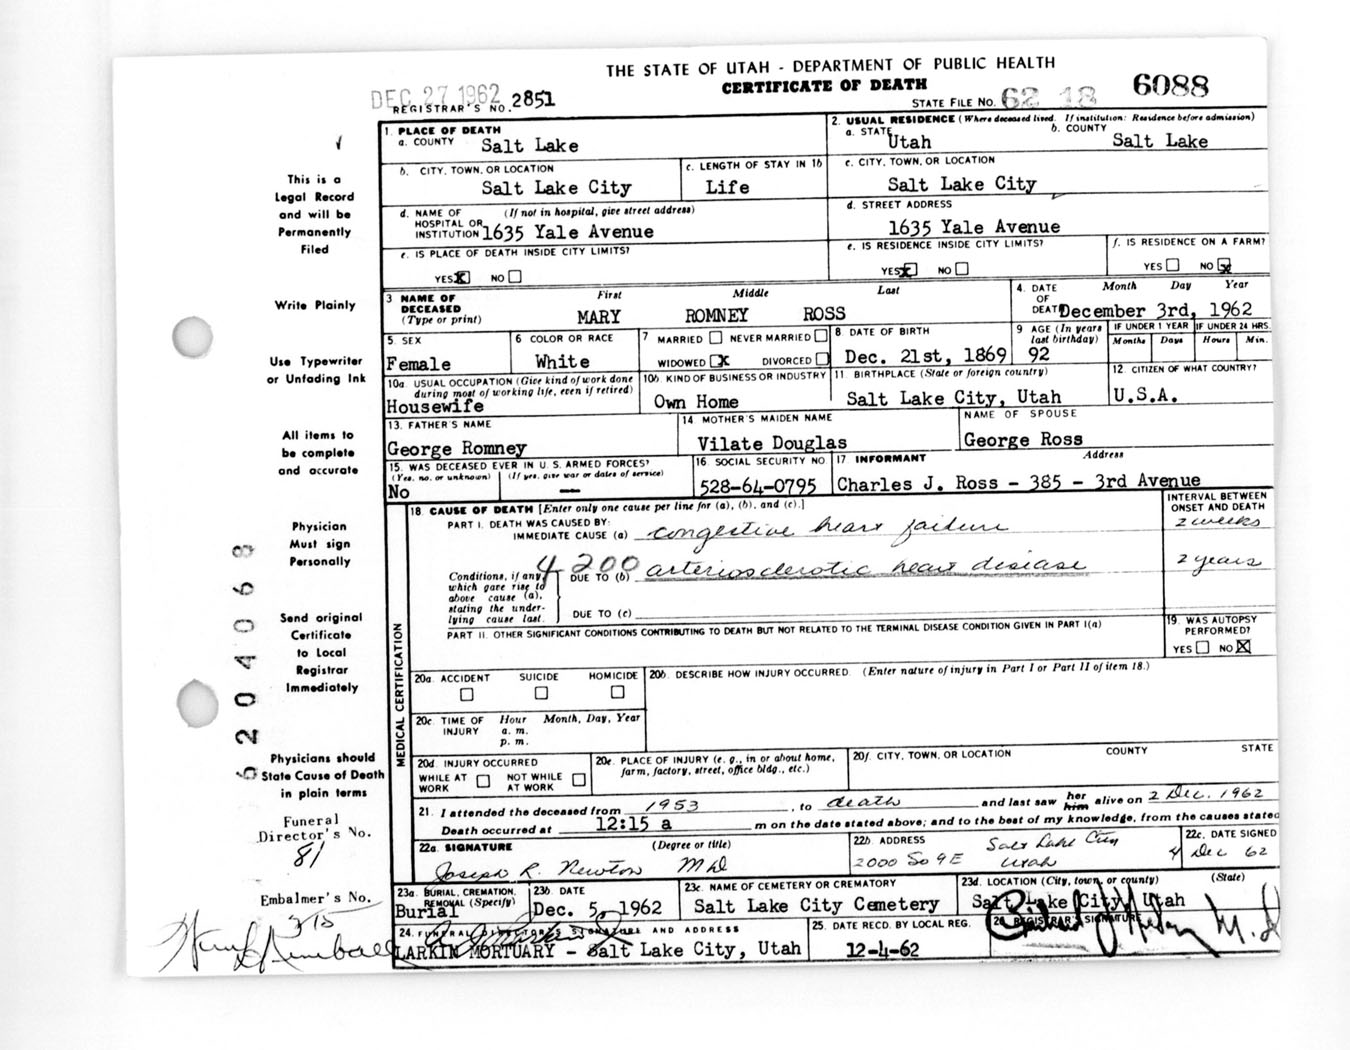 THE STATE OF UTAH - DEPARTMENT OF PUBLIC HEALTH
CERTIFICATE OF DEATH
DEC 27 1962
REGISTRAR'S NO. 2851
STATE FILE NO. 62 18 6088
This is a
Legal Record
and will be
Permanently
Filed
Write Plainly
Use Typewriter
or Unfading Ink
All items to
be complete
and accurate
Physician
Must sign
Personally
Send original
Certificate
to Local
Registrar
Immediately
Physicians should
State Cause of Death
in plain terms
Funeral
Director's No.
81
Embalmer's No.
315
5204068
1. PLACE OF DEATH
a. COUNTY Salt Lake
2. USUAL RESIDENCE (Where deceased lived. If institution: Residence before admission)
a. STATE Utah b. COUNTY Salt Lake
b. CITY, TOWN, OR LOCATION Salt Lake City
c. LENGTH OF STAY IN 1b Life
c. CITY, TOWN, OR LOCATION Salt Lake City
d. NAME OF HOSPITAL OR INSTITUTION (If not in hospital, give street address) 1635 Yale Avenue
d. STREET ADDRESS 1635 Yale Avenue
e. IS PLACE OF DEATH INSIDE CITY LIMITS? YES X NO
e. IS RESIDENCE INSIDE CITY LIMITS? YES X NO
f. IS RESIDENCE ON A FARM? YES NO X
3 NAME OF DECEASED (Type or print) First Middle Last
MARY ROMNEY ROSS
4. DATE OF DEATH Month Day Year
December 3rd, 1962
5. SEX Female
6 COLOR OR RACE White
7 MARRIED NEVER MARRIED WIDOWED X DIVORCED
8 DATE OF BIRTH Dec. 21st, 1869
9 AGE (In years last birthday) 92
IF UNDER 1 YEAR Months Days
IF UNDER 24 HRS. Hours Min.
10a. USUAL OCCUPATION (Give kind of work done during most of working life, even if retired) Housewife
10b. KIND OF BUSINESS OR INDUSTRY Own Home
11. BIRTHPLACE (State or foreign country) Salt Lake City, Utah
12. CITIZEN OF WHAT COUNTRY? U.S.A.
13. FATHER'S NAME George Romney
14. MOTHER'S MAIDEN NAME Vilate Douglas
NAME OF SPOUSE George Ross
15. WAS DECEASED EVER IN U. S. ARMED FORCES? (Yes, no, or unknown) (If yes, give war or dates of service) No —
16. SOCIAL SECURITY NO. 528-64-0795
17. INFORMANT Address Charles J. Ross - 385 - 3rd Avenue
MEDICAL CERTIFICATION
18. CAUSE OF DEATH [Enter only one cause per line for (a), (b), and (c).]
INTERVAL BETWEEN ONSET AND DEATH
PART I. DEATH WAS CAUSED BY:
IMMEDIATE CAUSE (a) congestive heart failure 2 weeks
4200
Conditions, if any, which gave rise to above cause (a), stating the underlying cause last.
DUE TO (b) arteriosclerotic heart disease 2 years
DUE TO (c)
PART II. OTHER SIGNIFICANT CONDITIONS CONTRIBUTING TO DEATH BUT NOT RELATED TO THE TERMINAL DISEASE CONDITION GIVEN IN PART I(a)
19. WAS AUTOPSY PERFORMED? YES NO X
20a. ACCIDENT SUICIDE HOMICIDE
20b. DESCRIBE HOW INJURY OCCURRED. (Enter nature of injury in Part I or Part II of item 18.)
20c. TIME OF INJURY Hour Month, Day, Year
a. m.
p. m.
20d. INJURY OCCURRED
WHILE AT WORK NOT WHILE AT WORK
20e. PLACE OF INJURY (e. g., in or about home, farm, factory, street, office bldg., etc.)
20f. CITY, TOWN, OR LOCATION COUNTY STATE
21. I attended the deceased from 1953, to death and last saw her him alive on 2 Dec. 1962
Death occurred at 12:15 a m on the date stated above; and to the best of my knowledge, from the causes stated
22a. SIGNATURE (Degree or title) Joseph R. Newton MD
22b. ADDRESS 2000 So 9 E Salt Lake City Utah
22c. DATE SIGNED 4 Dec 62
23a. BURIAL, CREMATION, REMOVAL (Specify) Burial
23b. DATE Dec. 5, 1962
23c. NAME OF CEMETERY OR CREMATORY Salt Lake City Cemetery
23d. LOCATION (City, town, or county) (State) Salt Lake City, Utah
24. FUNERAL DIRECTOR'S SIGNATURE AND ADDRESS
LARKIN MORTUARY - Salt Lake City, Utah
25. DATE RECD. BY LOCAL REG. 12-4-62
26. REGISTRAR'S SIGNATURE
M. D